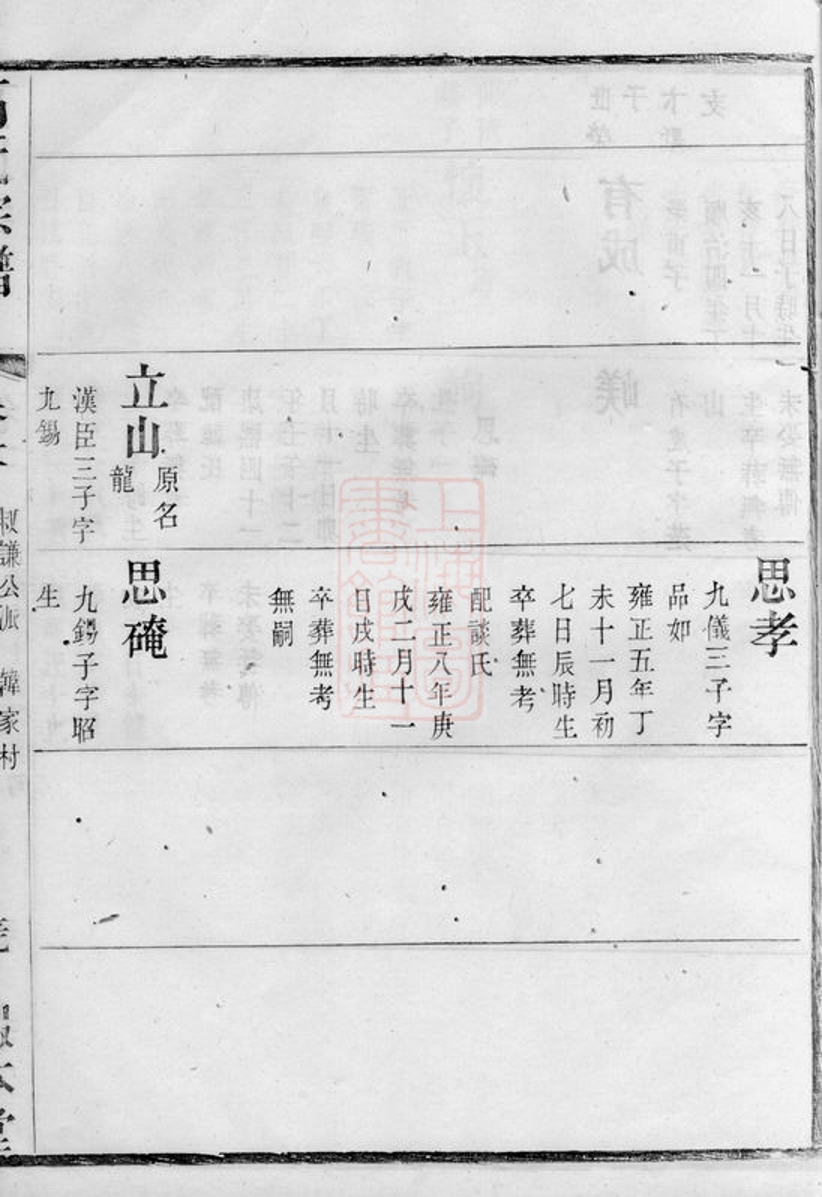 思孝
九儀三子字
品如
雍正五年丁
未十一月初
七日辰時生
卒葬無考
配談氏
雍正八年庚
戌二月十一
日戌時生
卒葬無考
無嗣
立山
原名
龍
漢臣三子字
九錫
思硽
九錫子字昭
生
宗譜
叔謙公派 韓家村
本堂